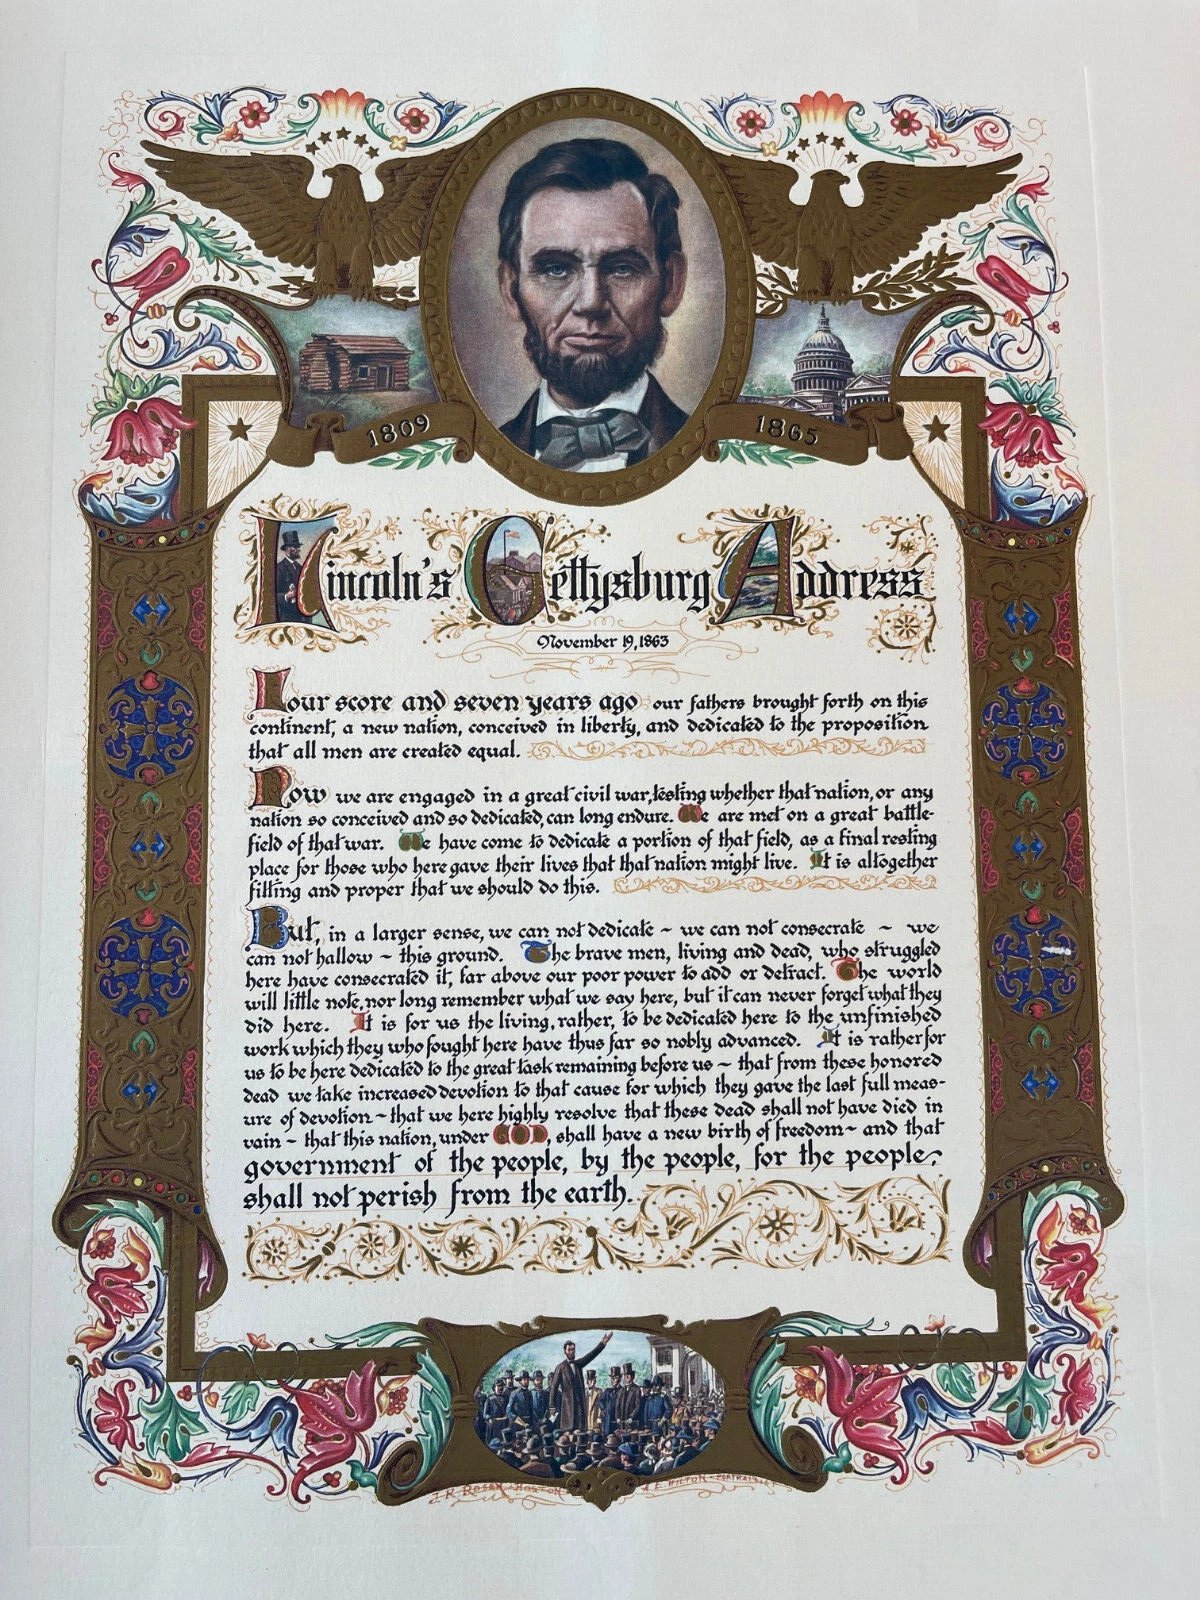 1809
1865
Lincoln's Gettysburg Address
November 19, 1863
Four score and seven years ago our fathers brought forth on this
continent, a new nation, conceived in liberty, and dedicated to the proposition
that all men are created equal.
Now we are engaged in a great civil war, testing whether that nation, or any
nation so conceived and so dedicated, can long endure. We are met on a great battle-
field of that war. We have come to dedicate a portion of that field, as a final resting
place for those who here gave their lives that that nation might live. It is altogether
fitting and proper that we should do this.
But, in a larger sense, we can not dedicate ~ we can not consecrate ~ we
can not hallow ~ this ground. The brave men, living and dead, who struggled
here have consecrated it, far above our poor power to add or detract. The world
will little note, nor long remember what we say here, but it can never forget what they
did here. It is for us the living, rather, to be dedicated here to the unfinished
work which they who fought here have thus far so nobly advanced. It is rather for
us to be here dedicated to the great task remaining before us ~ that from these honored
dead we take increased devotion to that cause for which they gave the last full meas-
ure of devotion ~ that we here highly resolve that these dead shall not have died in
vain ~ that this nation, under GOD, shall have a new birth of freedom ~ and that
government of the people, by the people, for the people,
shall not perish from the earth.
J. R. Rosen Boston
A. E. Hilton